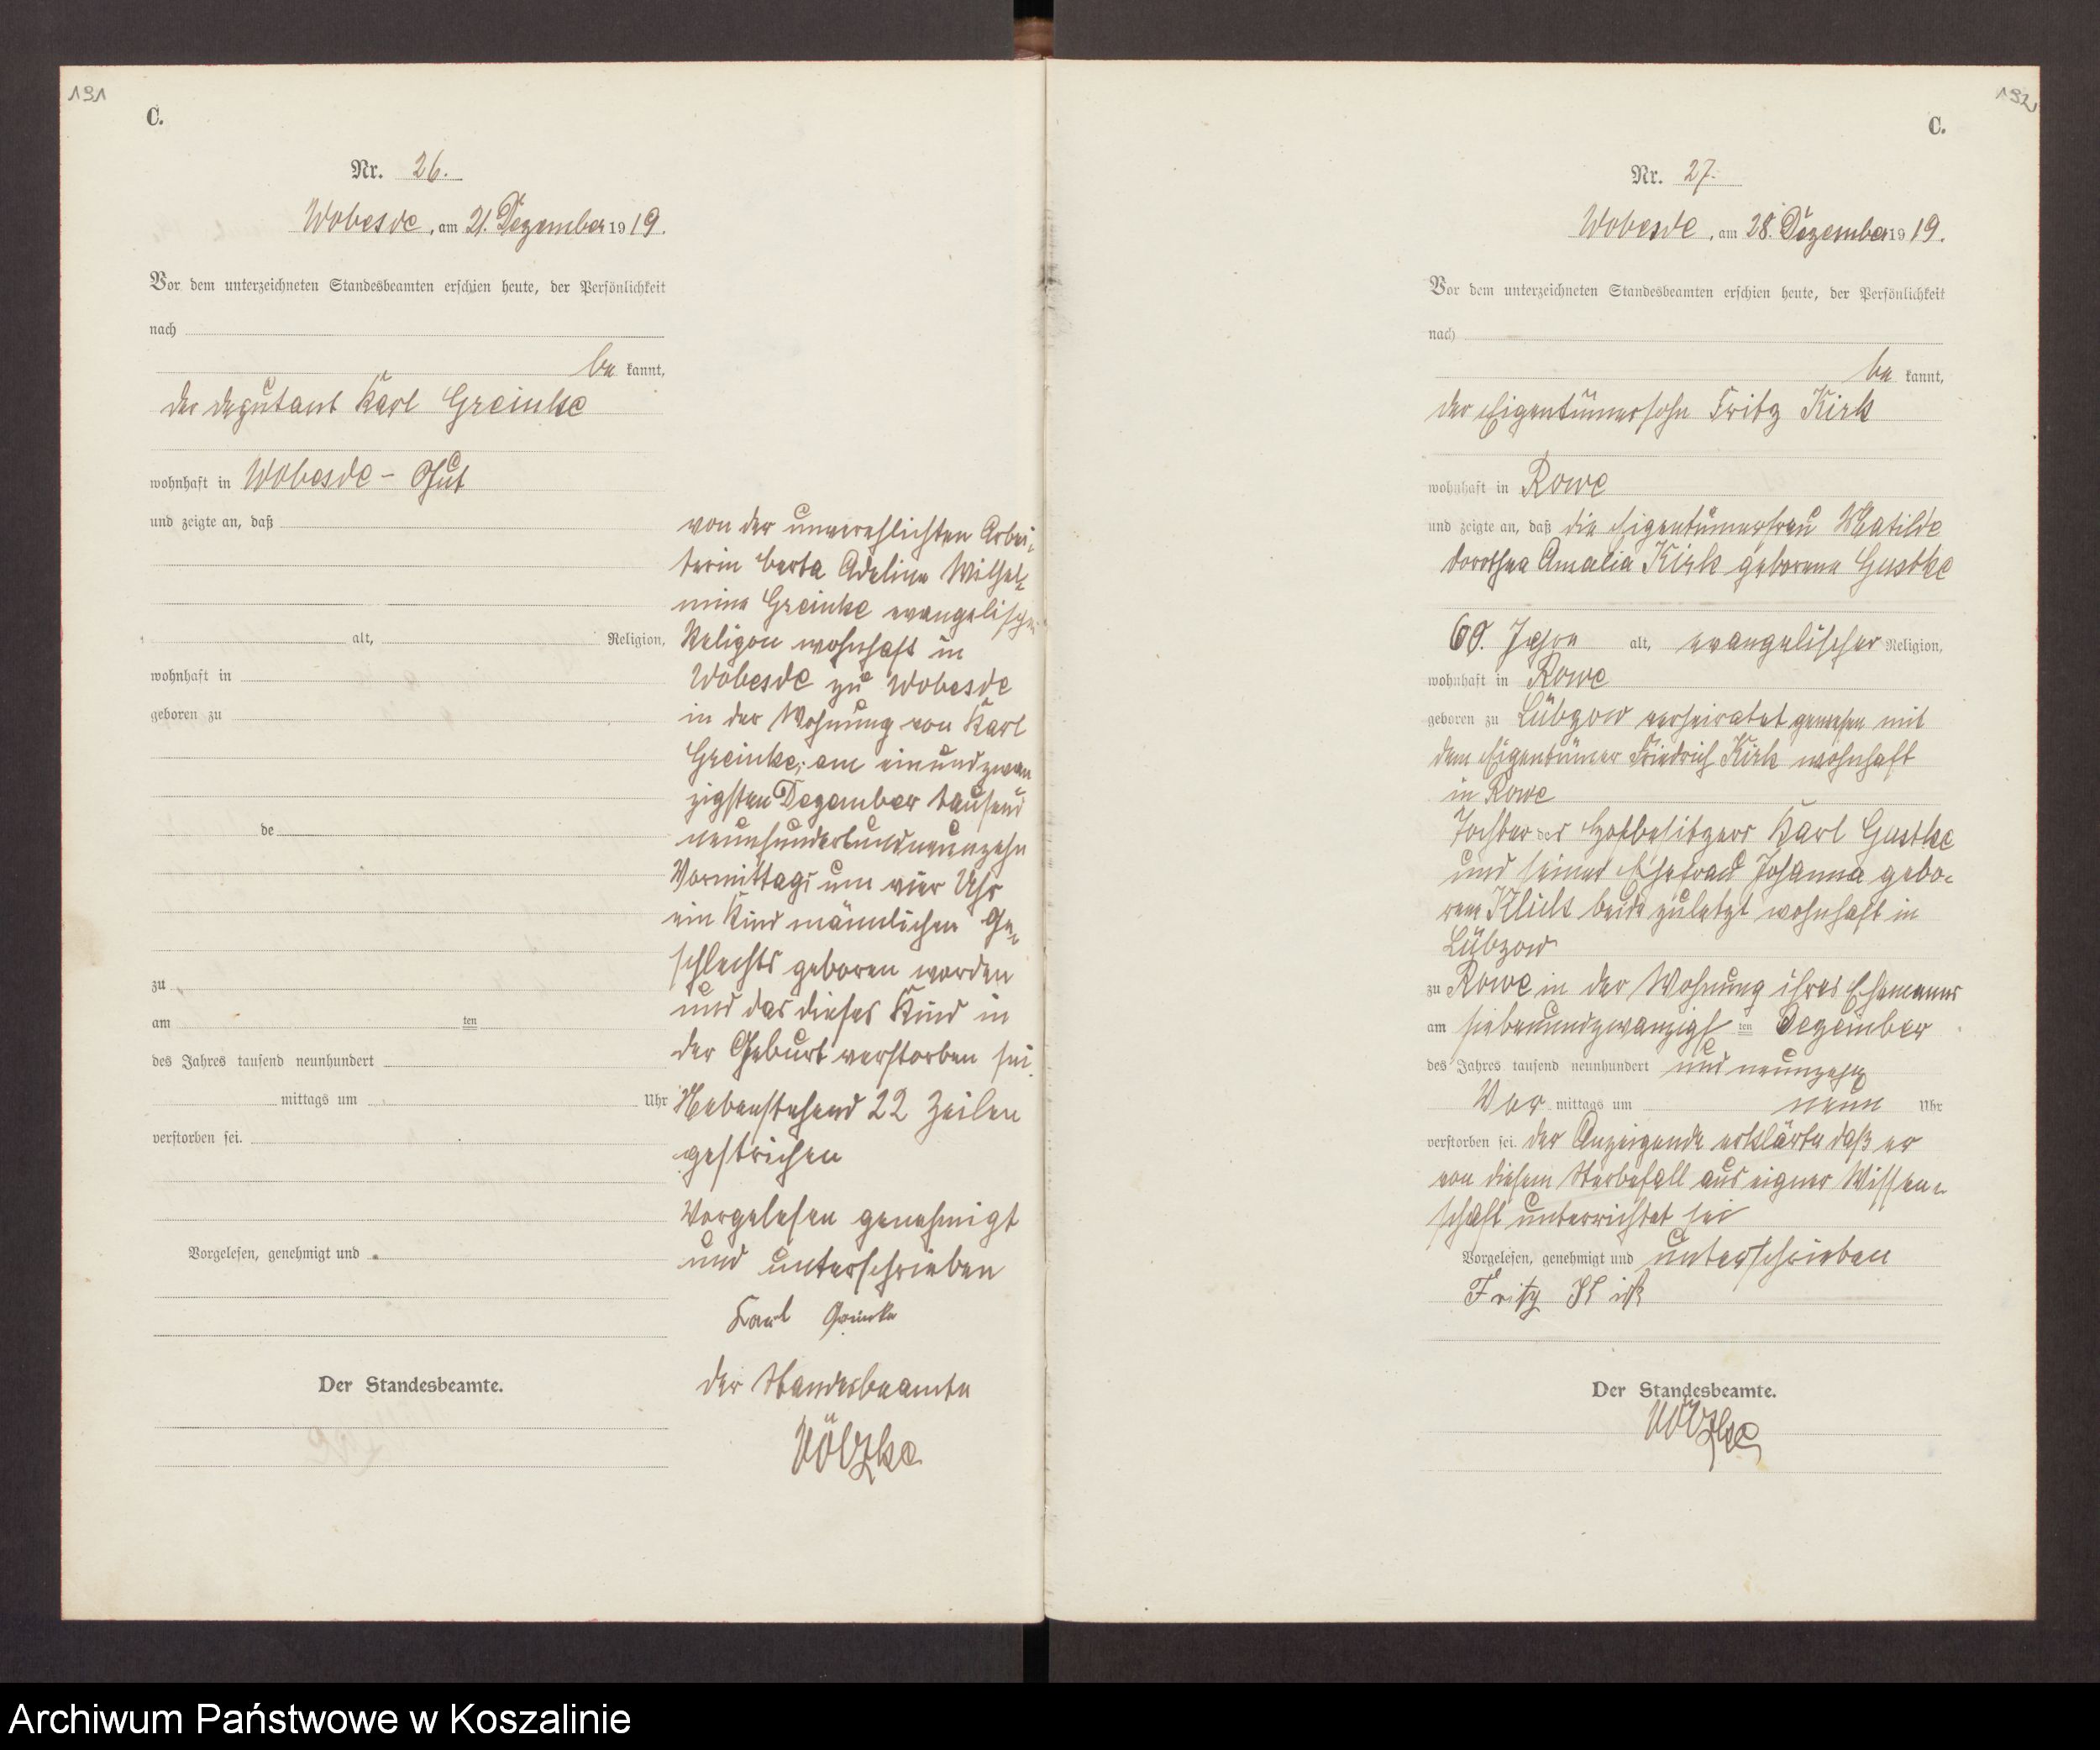 191
C.
Nr. 26.
Wobesde, am 21. Dezember 1919.
Vor dem unterzeichneten Standesbeamten erschien heute, der Persönlichkeit
nach
be kannt,
der Deputant Karl Greinke
wohnhaft in Wobesde - Gut
und zeigte an, daß
alt, Religion,
wohnhaft in
geboren zu
de
zu
am ten
des Jahres tausend neunhundert
mittags um Uhr
verstorben sei.
Vorgelesen, genehmigt und
Der Standesbeamte.
von der unverehlichten Arbei-
terin Berta Adeline Wilhel-
mine Greinke evangelischer
Religon wohnhaft in
Wobesde zu Wobesde
in der Wohnung von Karl
Greinke, am einundzwan
zigsten Dezember tausend
neunhundertundneunzehn
Vormittags um vier Uhr
ein Kind männlichen Ge-
schlechts geboren worden
und das dieses Kind in
der Geburt verstorben sei.
Nebenstehend 22 Zeilen
gestrichen
Vorgelesen genehmigt
und unterschrieben
Karl Greinke
der Standesbeamte
Völzke
192
C.
Nr. 27.
Wobesde, am 28. Dezember 1919.
Vor dem unterzeichneten Standesbeamten erschien heute, der Persönlichkeit
nach
be kannt,
der Eigentümersohn Fritz Kirk
wohnhaft in Rowe
und zeigte an, daß die Eigentümerfrau Matilde
Dorothea Amalia Kirk geborene Gustke
60. Jahre alt, evangelischer Religion,
wohnhaft in Rowe
geboren zu Lübzow verheiratet gewesen mit
dem Eigentümer Friedrich Kirk wohnhaft
in Rowe
Tochter des Hofbesitzers Karl Gustke
und seiner Ehefrau Johanna gebo-
rene Klick beide zuletzt wohnhaft in
Lübzow
zu Rowe in der Wohnung ihres Ehemanns
am siebenundzwanzigs ten Dezember
des Jahres tausend neunhundert und neunzehn
Vor mittags um neun Uhr
verstorben sei. Der Anzeigende erklärte daß er
von diesem Sterbefall aus eigner Wissen-
schaft unterrichtet sei
Vorgelesen, genehmigt und unterschrieben
Fritz Kirk
Der Standesbeamte.
Völzke
Archiwum Państwowe w Koszalinie